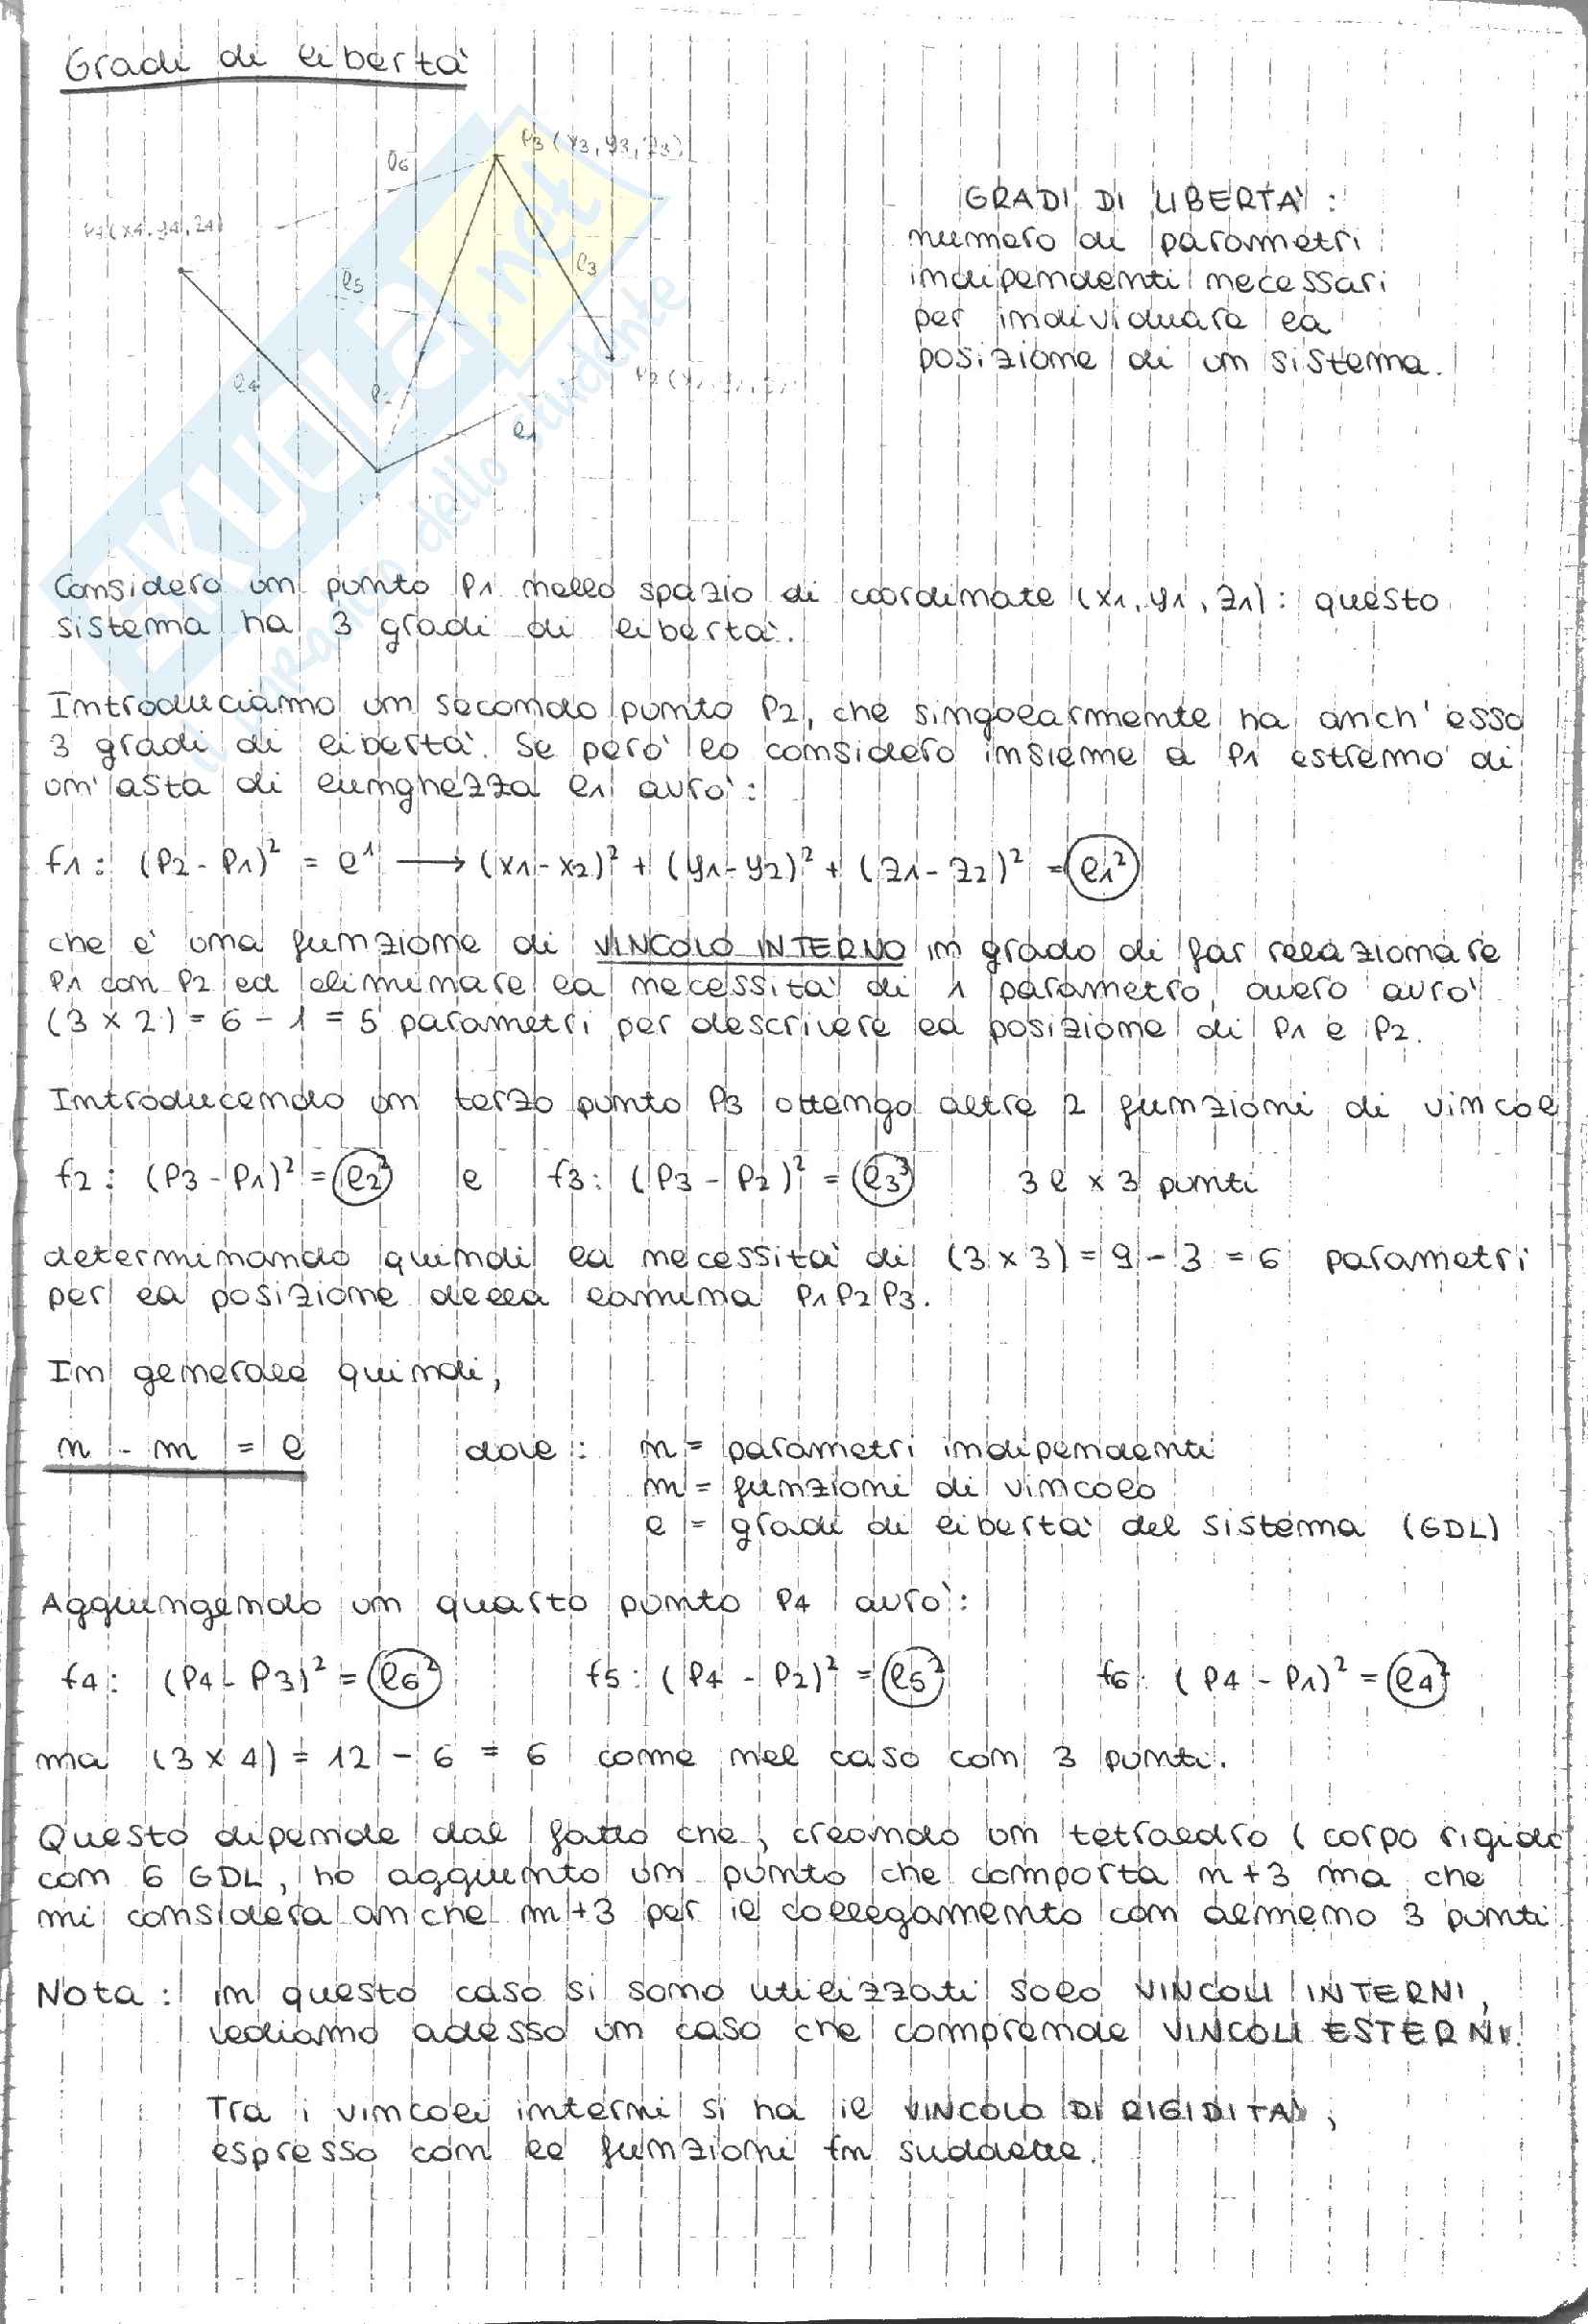 Gradi di libertà
P3 (x3, y3, z3)
l6
P4 (x4, y4, z4)
l5
l3
l4
l2
l1
GRADI DI LIBERTA' :
numero di parametri
indipendenti necessari
per individuare la
posizione di un sistema.
SKUOLA.net
Considero un punto P1 nello spazio di coordinate (x1, y1, z1): questo
sistema ha 3 gradi di libertà.
Introduciamo un secondo punto P2, che singolarmente ha anch'esso
3 gradi di libertà. Se però lo considero insieme a P1 estremo di
un'asta di lunghezza l1 avrò:
f1: (P2 - P1)² = l¹ → (x1 - x2)² + (y1 - y2)² + (z1 - z2)² = l1²
che è una funzione di VINCOLO INTERNO in grado di far relazionare
P1 con P2 ed eliminare la necessità di 1 parametro, ovvero avrò
(3 x 2) = 6 - 1 = 5 parametri per descrivere la posizione di P1 e P2.
Introducendo un terzo punto P3 ottengo altre 2 funzioni di vincol
f2: (P3 - P1)² = l2² e f3: (P3 - P2)² = l3³ 3 l x 3 punti
determinando quindi la necessità di (3 x 3) = 9 - 3 = 6 parametri
per la posizione della lamina P1 P2 P3.
In generale quindi,
n - m = l dove: n = parametri indipendenti
m = funzioni di vincolo
l = gradi di libertà del sistema (GDL)
Aggiungendo un quarto punto P4 avrò:
f4: (P4 - P3)² = l6² f5: (P4 - P2)² = l5² f6: (P4 - P1)² = l4²
ma (3 x 4) = 12 - 6 = 6 come nel caso con 3 punti.
Questo dipende dal fatto che, creando un tetraedro (corpo rigido
con 6 GDL, ho aggiunto un punto che comporta n+3 ma che
mi considera anche m+3 per il collegamento con almeno 3 punti
Nota: in questo caso si sono utilizzati solo VINCOLI INTERNI,
vediamo adesso un caso che comprende VINCOLI ESTERNI.
Tra i vincoli interni si ha il VINCOLO DI RIGIDITA',
espresso con le funzioni fn suddette.